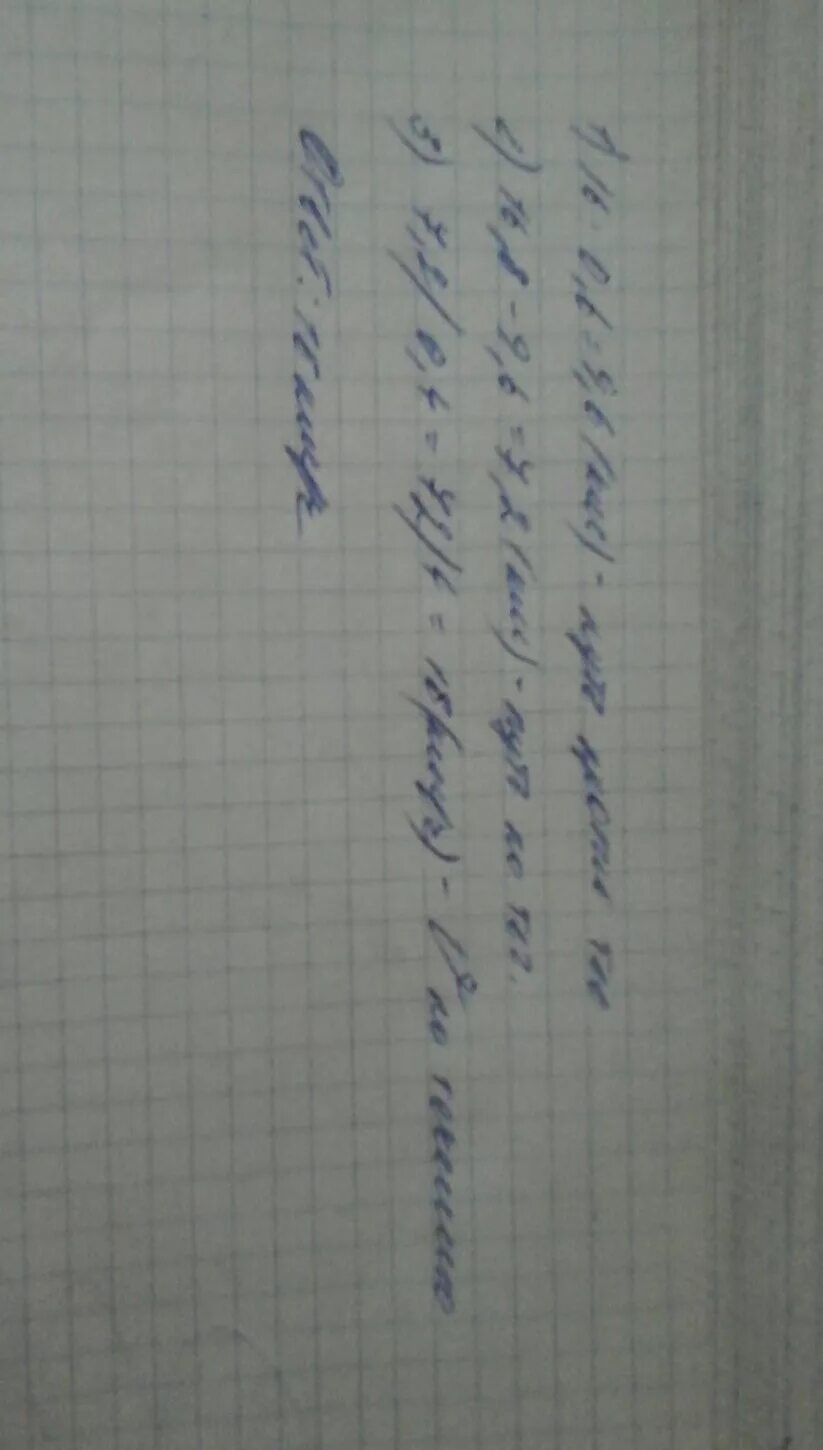 1) 16 · 0,6 = 9,6 (км) - путь против теч
2) 16,8 - 9,6 = 7,2 (км) - путь по теч.
3) 7,2 / 0,4 = 72/4 = 18 (км/ч) - V по течению
Ответ: 18 км/ч